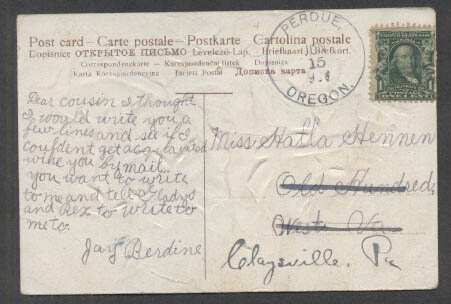 Post card — Carte postale — Postkarte Cartolina postale
Dopisnice ОТКРЫТОЕ ПИСЬМО Levelező-Lap. Briefkaart Brefkort
Correspondenzkarte — Korespondenční lístek Dopisnica
Karta Korespondencyjna — Tarjeta Postal Дописна карта
PERDUE
15
OREGON.
Dear cousin I thought
I would write you a
few lines and see if I
couldent get acquainted
with you by mail.
you want to write
to me and tell Gladys
and Rex to write to
me to.
Jay Berdine
Miss Halla Hennen
Old Hundred
West Va
Claysville, Pa